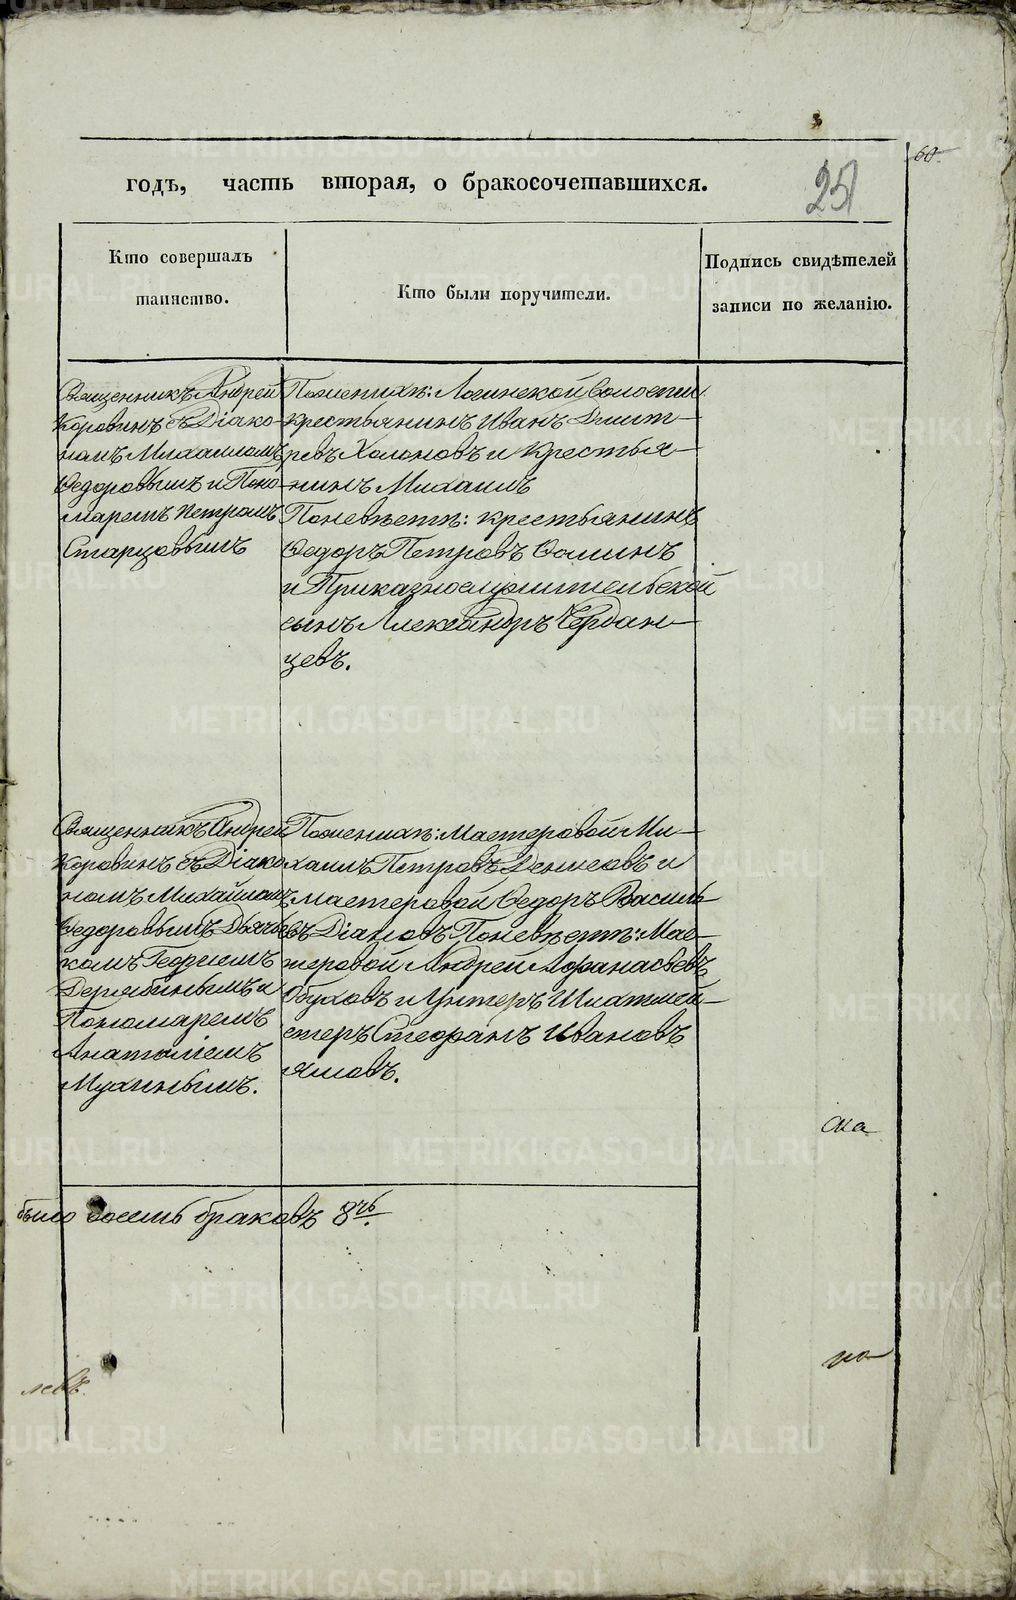 60.
годъ, часть вторая, о бракосочетавшихся.
25
Кто совершалъ
таинство.
Кто были поручители.
Подпись свидѣтелей
записи по желанію.
Священникъ Андрей
Коровинъ съ Діако-
номъ Михаиломъ
Ѳедоровымъ и Поно-
маремъ Петромъ
Старцовымъ
По женихѣ: волости
крестьянинъ Иванъ Дмит-
ревъ Холоновъ и Крестья-
нинъ Михаилъ
По невѣстѣ: крестьянинъ
Ѳедоръ Петровъ Ѳоминъ
и Приказнослужительской
сынъ Александръ Чердан-
цевъ.
Священникъ Андрей
Коровинъ съ Діако
номъ Михаиломъ
Ѳедоровымъ Дьяч-
комъ Георгіемъ
Дерябинымъ и
Пономаремъ
Анатоліемъ
Мухинымъ.
По женихѣ: Мастеровой Ми-
хаилъ Петровъ Денисовъ и
мастеровой Ѳедоръ Василь
евъ Діановъ По невѣстѣ: Мас-
теровой Андрей Аѳанасьевъ
Обуховъ и Унтеръ Шихтмей-
стеръ Стефанъ Ивановъ
Ямовъ.
было восемь браковъ 8мь.
METRIKI.GASO-URAL.RU